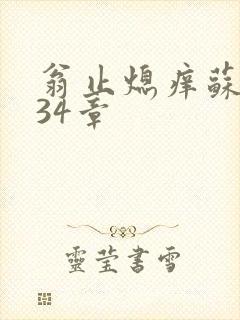 翁止熄痒蘇
34章
靈莹書雪